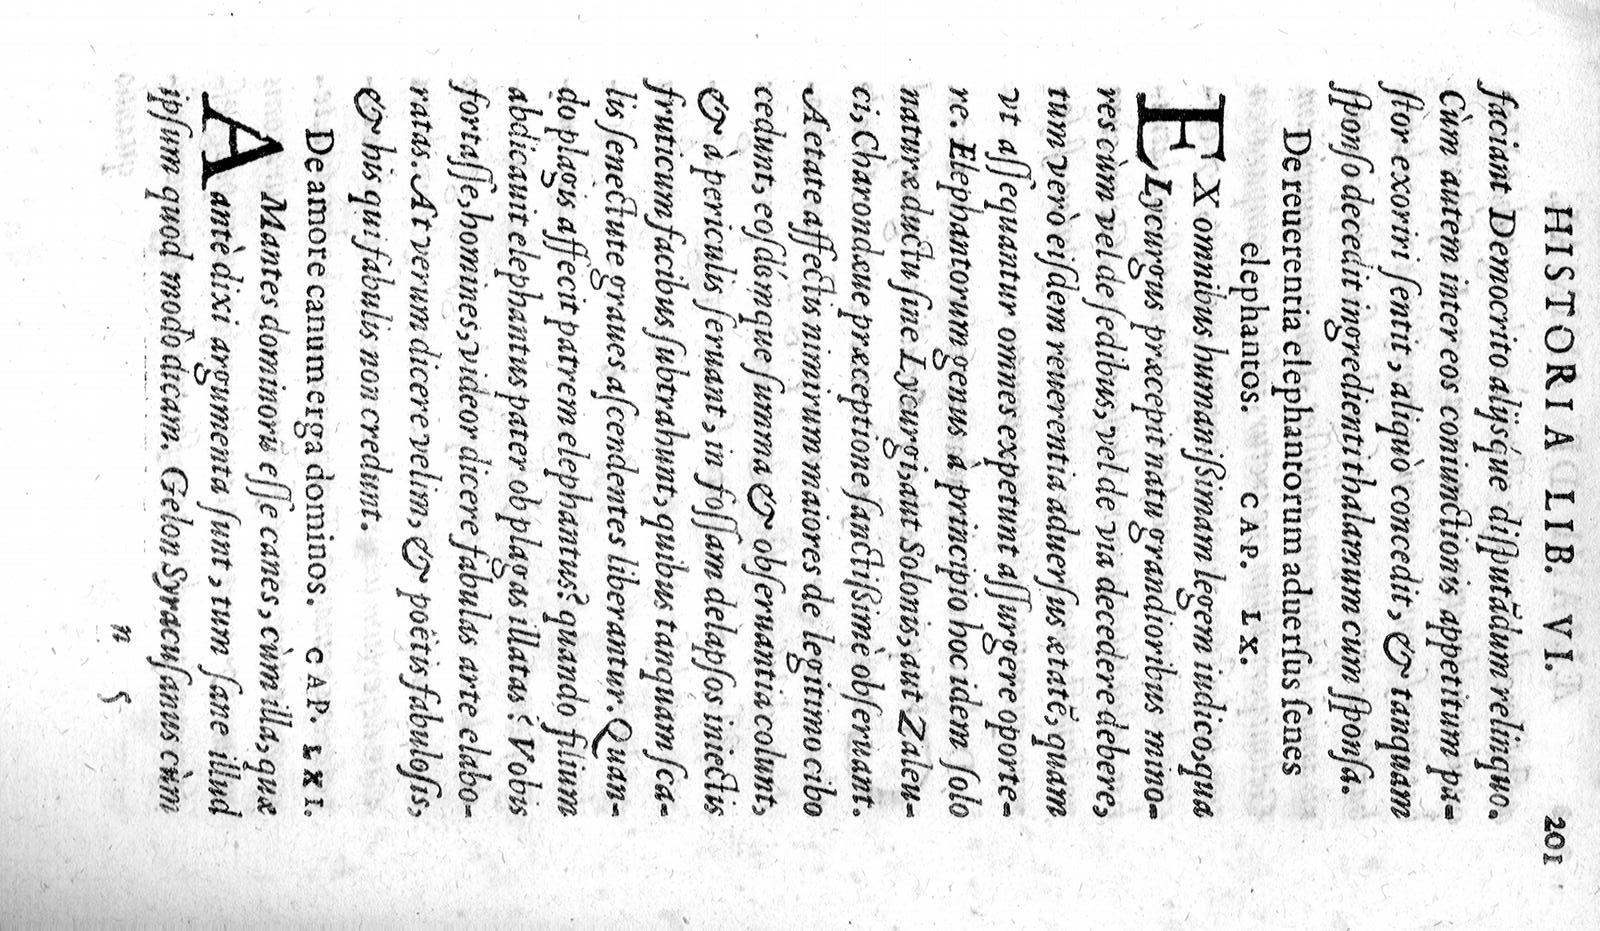 HISTORIA LIB. VI. 201
faciant Democrito alijsq́ue diſputãdum relinquo.
Cùm autem inter eos coniunctionis appetitum pa-
ſtor exoriri ſentit, aliquò concedit, & tanquam
ſponſo decedit ingredienti thalamum cum ſponſa.
De reuerentia elephantorum aduerſus ſenes
elephantos. CAP. LX.
EX omnibus humaniſsimam legem iudico, qua
Lycurgus præcepit natu grandioribus mino-
res cùm vel de ſedibus, vel de via decedere debere,
tum verò eiſdem reuerentia aduerſus ætatẽ, quam
vt aſſequantur omnes expetunt aſſurgere oporte-
re. Elephantorum genus à principio hoc idem ſolo
naturæ ductu ſine Lycurgi, aut Solonis, aut Zaleu-
ci, Charondæue præceptione ſanctiſsimè obſeruant.
Aetate affectus nimirum maiores de legitimo cibo
cedunt, eoſdémque ſumma & obſeruantia colunt,
& à periculis ſeruant, in foſſam delapſos iniectis
fruticum facibus ſubtrahunt, quibus tanquam ſca-
lis ſenectute graues aſcendentes liberantur. Quan-
do plagis affecit patrem elephantus? quando filium
abdicauit elephantus pater ob plagas illatas? Vobis
fortaſſe, homines, videor dicere fabulas arte elabo-
ratas. At verum dicere velim, & poëtis fabuloſis,
& his qui fabulis non credunt.
De amore canum erga dominos. CAP. LXI.
AMantes dominorũ eſſe canes, cùm illa, quæ
antè dixi argumenta ſunt, tum ſane illud
ipſum quod modò dicam. Gelon Syracuſanus cùm
n 5